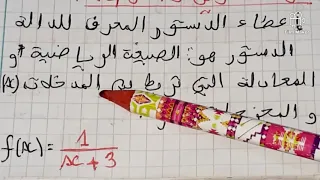 إعطاء الدستور المعرف للدالة
الدستور هو: الصيغة الرياضية أو
المعادلة التي تربط بين المدخلات (x)
و المخرجات
f(x) = 1 / x + 3